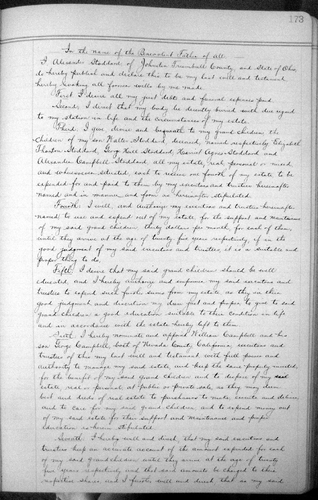 173
In the name of the Benevolent Father of all.
I Alexander Stoddard of Johnston Trumbull County, and State of Ohio,
do hereby publish and declare this to be my last will and testament
hereby revoking all former wills by me made.
First, I desire all my just debts and funeral expenses paid.
Second, I direct that my body be decently buried with due regard
to my station in life and the circumstances of my estate.
Third, I give devise and bequeath to my grand children the
children of my son Walter Stoddard, deceased, named respectively Elizabeth
Stoddard, George Stoddard, Agnes Stoddard, and
Alexander Campbell Stoddard, all my estate, real personal or mixed
and wheresoever situated, each to receive one fourth of my estate to be
expended for and paid to them by my executors and trustees hereinafter
named and in manner and form as hereinafter stipulated.
Fourth, I will, and authorize my executors and trustees hereinafter
named to use and expend out of my estate for the support and maintenance
of my said grand children thirty dollars per month for each of them,
until they arrive at the age of twenty five years respectively, if in the
good judgment of my said executors and trustees, it is a suitable and
proper thing to do.
Fifth, I desire that my said grand children should be well
educated, and I hereby authorize and empower my said executors and
trustees to expend such further sums from my estate as they in their
good judgment and discretion may deem fit and proper, to give to said
grand children a good education suitable to their condition in life
and in accordance with the estate hereby left to them.
Sixth, I hereby nominate and appoint William Campbell and his
son George Campbell, both of Nevada County, California, executors and
trustees of this my last will and testament with full power and
authority to manage my said estate, and hold the same properly invested,
for the benefit of my said grand children and to dispose of my said
estate, real or personal at public or private sale, as they may deem
best and deeds of real estate to purchasers to make, execute and deliver,
and to care for my said grand children and to expend money out
of my said estate for their support and maintenance and proper
education as herein stipulated.
Seventh, I hereby will and direct, that my said executors and
trustees keep an accurate account of the amount expended for each
of my said grand children until they arrive at the age of twenty
five years respectively and that said amounts be charged to their
respective shares and I further will and direct that as my said